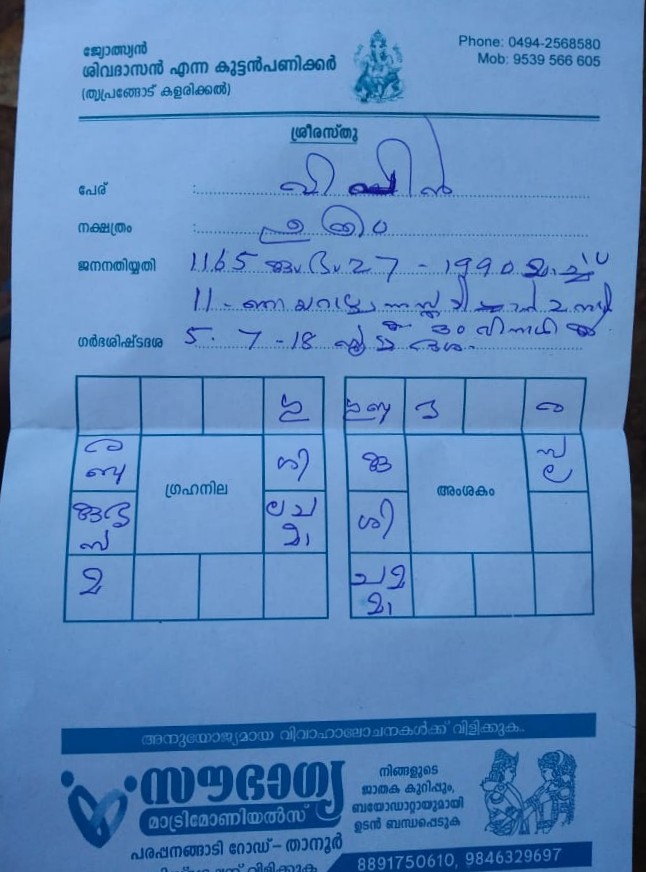 ജ്യോത്സ്യൻ
ശിവദാസൻ എന്ന കുട്ടൻപണിക്കർ
(തൃപ്രങ്ങോട് കളരിക്കൽ)
Phone: 0494-2568580
Mob: 9539 566 605
ശ്രീരസ്തു
പേര് : വിപിൻ
നക്ഷത്രം : ഉത്രം
ജനനതിയ്യതി 1165 കുംഭം 27 - 1990 മാർച്ച്
11-ഞായറാഴ്ച
ഗർഭശിഷ്ടദശ 5-7-18
ഗു
ര
ശി
ഗ്രഹനില
ല ച
മാ
അംശകം
ശി
ച മ
മാ
അനുയോജ്യമായ വിവാഹാലോചനകൾക്ക് വിളിക്കുക..
സൗഭാഗ്യ
മാട്രിമോണിയൽസ്
പരപ്പനങ്ങാടി റോഡ് - താനൂർ
നിങ്ങളുടെ
ജാതക കുറിപ്പും,
ബയോഡാറ്റായുമായി
ഉടൻ ബന്ധപ്പെടുക
8891750610, 9846329697